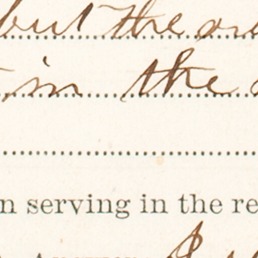 but the
in the
n serving in the re